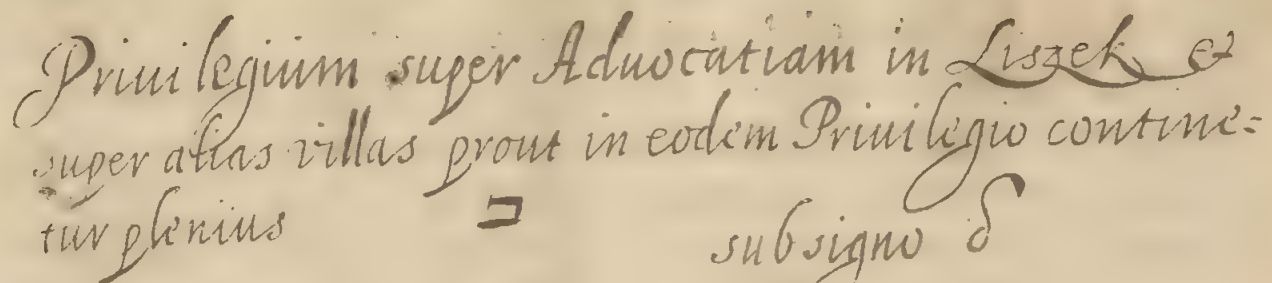 Priuilegium super Aduocatiam in Liszek &
super alias villas prout in eodem Priuilegio contine=
tur plenius ב sub signo δ